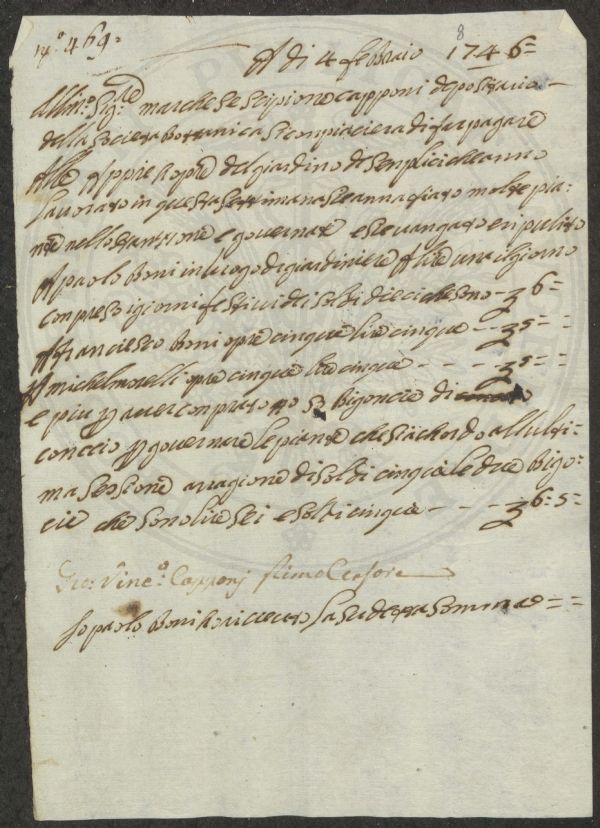 N.º 464=
8
A di 4 febraio 1746=
All Ill.mo Sig.re marchese scipione capponi depositario
della societa bottanica si conpiaciera di far pagare
Alle Appie opre del giardino di senplici che anno
lavorato in questa settimana e anna fiato molte pia=
nte nello stantione e governate e se vangato e ripulito
A paolo boni in luogo di giardiniere A lire una il giorno
conpreso i giorni festivi di soldi dieci che sono - 6=
A franciesco boni opre cinque lire cinque - - 5= =
A michel morelli opre cinque lire cinque - - - 5= =
e piu p aver conprato no 50 bigoncie di
conccio p governare le piante che si achordo all ulti=
ma sessione arragione di soldi cinque le due bigo=
cie che sono lire sei e soldi cinque - - - 6= 5=
Gio: Vinc.o Capponj Primo Censore
Io paolo boni ho ricieuto la sudetta somma = =